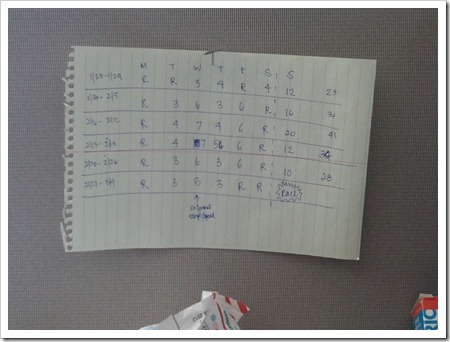 M T W T F S S
1/23-1/29 R R 3 4 R 4 12 23
1/30-2/5 R 3 6 3 6 R 16
2/6-2/12 R 4 7 4 6 R 20 41
R 4 7 6 R 12
2/20-2/26 R 3 6 3 6 R 10 28
R 3 5 3 R R
RACE